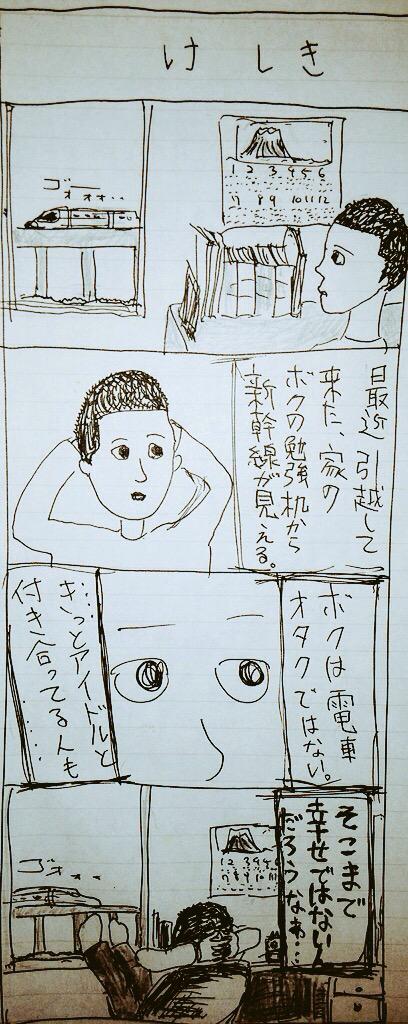 けしき
1 2 3 4 5 6
7 8 9 10 11 12
ゴー
オオォ・・・
最近引越して
来た、家の
ボクの勉強机から
新幹線が見える。
ボクは電車
オタクではない。
きっとアイドルと
付き合ってる人も
・・・・・
そこまで
幸せではないん
だろうなぁ・・・
ゴオォ・・